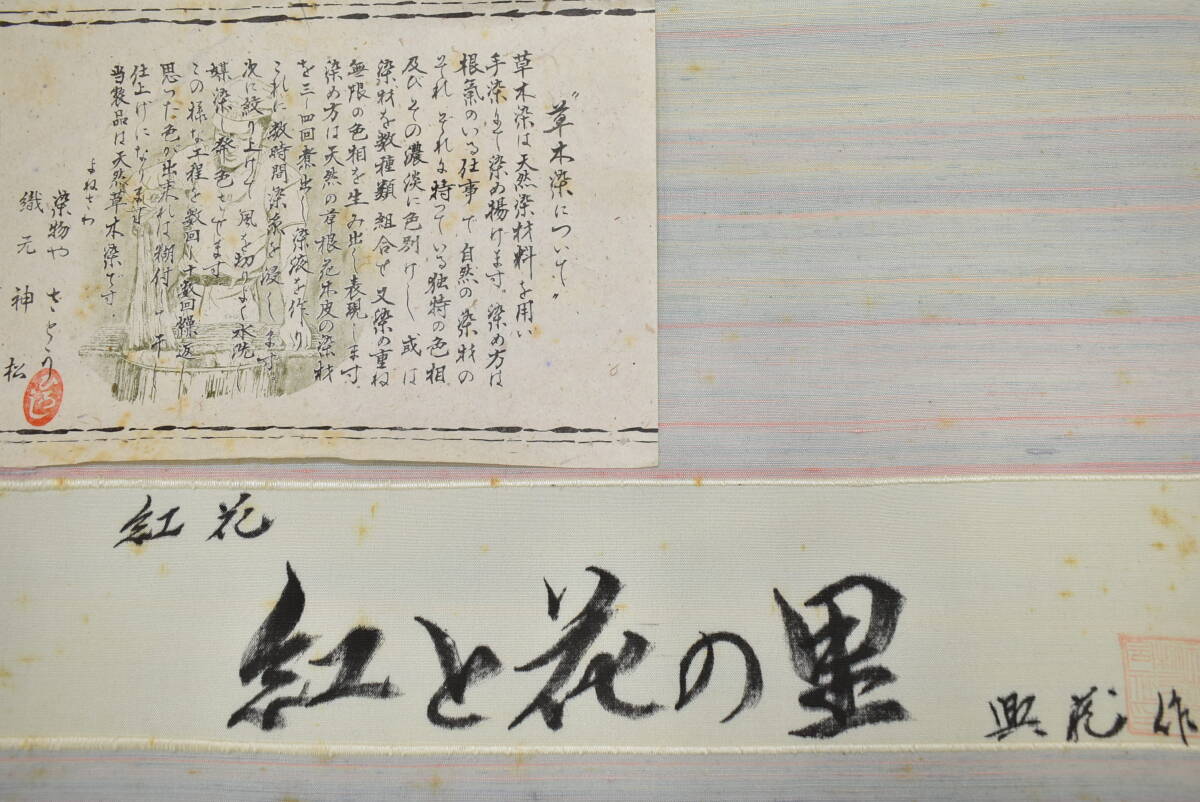 〝草木染について〟
草木染は天然染材料を用い
手染にて染め揚げます。染め方は
根氣のいる仕事で自然の染材の
それぞれに持っている独特の色相
及びその濃淡に色別けし或は
染材を数種類組合せ又染の重ね
無限の色相を生み出し表現します。
染め方は天然の草根花木皮の染材
を三~四回煮出し染液を作り
これに数時間染糸を浸します。
次に絞り上げて風を切りよく水洗
媒染し発色させます
この様な工程を数回~十数回繰返
思った色が出来れば糊付し
仕上げになります
当製品は天然草木染です。
よねざわ
染物や さとう
織元 神松
紅花
紅と花の里
興花作